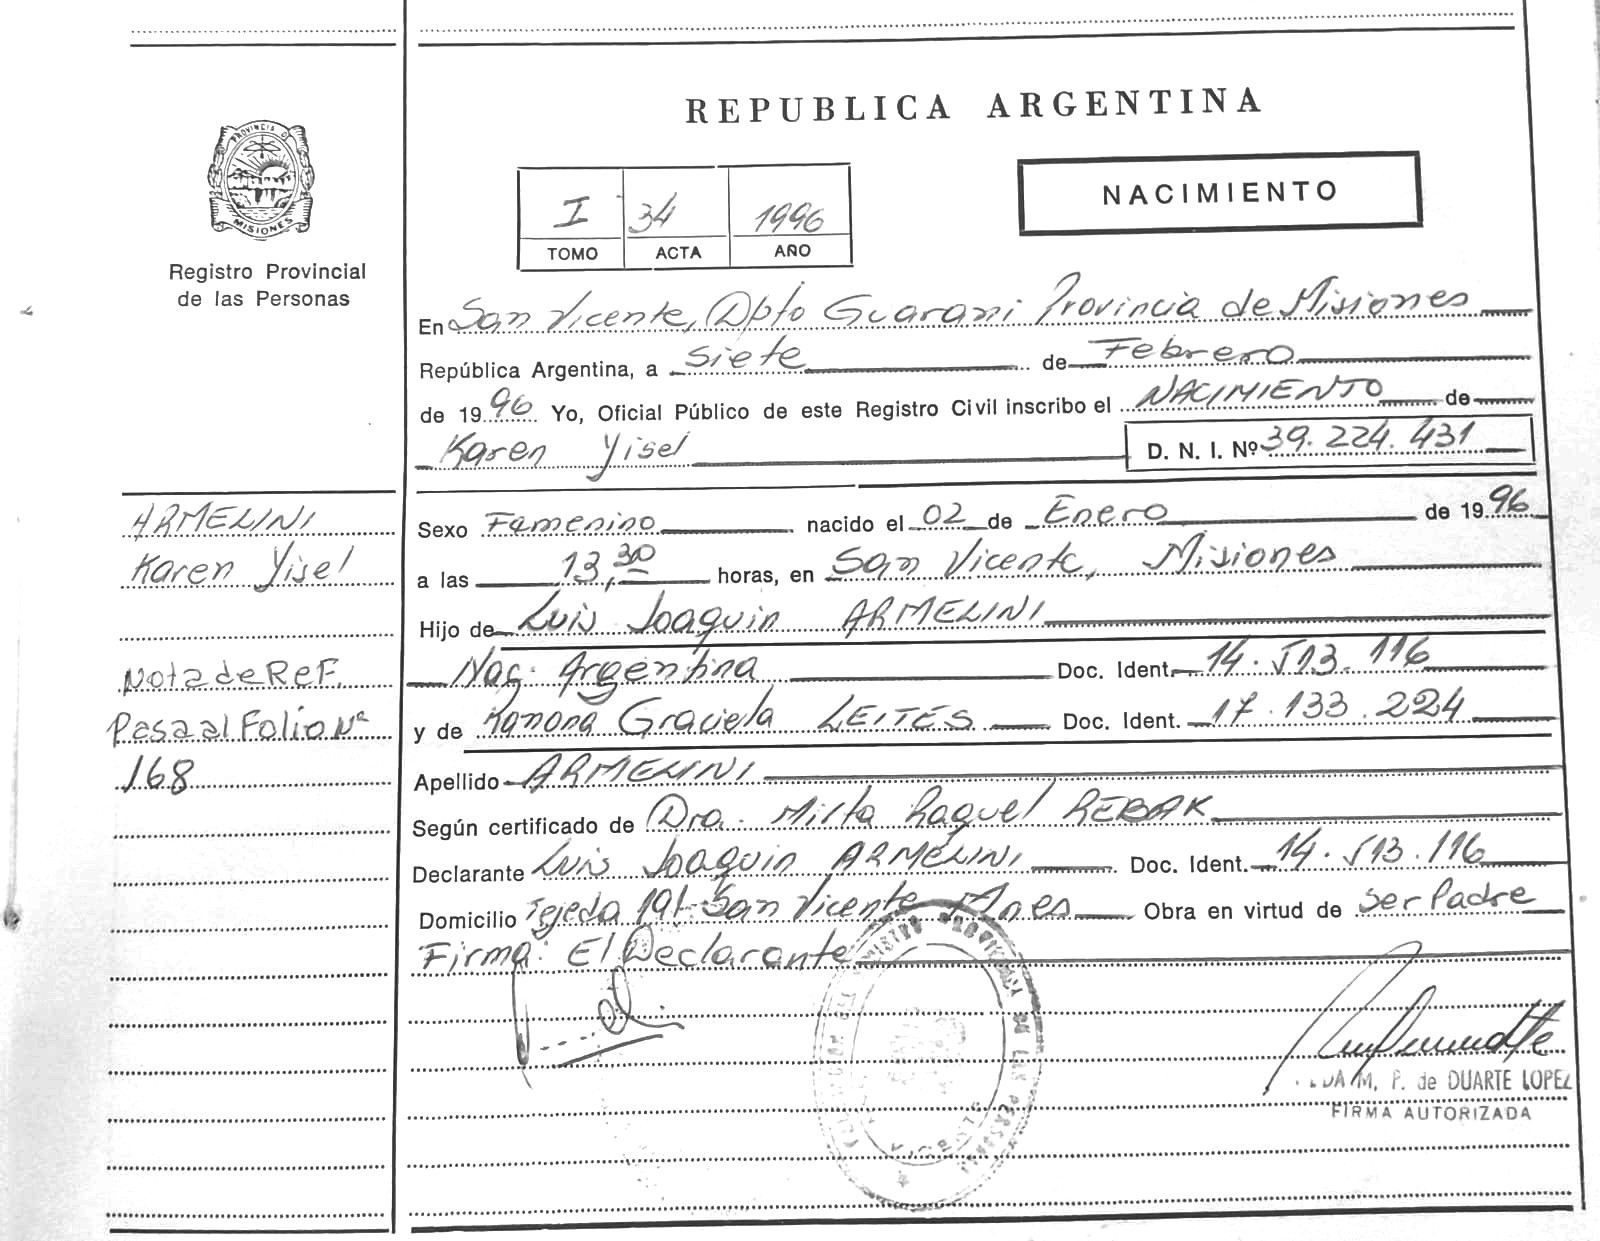 REPUBLICA ARGENTINA
PROVINCIA D
MISIONES
Registro Provincial
de las Personas
I 34 1996
TOMO ACTA AÑO
NACIMIENTO
En San Vicente, Dpto Guarani Provincia de Misiones
República Argentina, a Siete de Febrero
de 1996 Yo, Oficial Público de este Registro Civil inscribo el NACIMIENTO de
Karen Yisel D. N. I. Nº 39.224.431
ARMELINI
Karen Yisel
Nota de Ref.
Pasa al Folio Nº
168
Sexo Femenino nacido el 02 de Enero de 1996
a las 13,30 horas, en San Vicente, Misiones
Hijo de Luis Joaquin ARMELINI
Nac. Argentina Doc. Ident. 14.513.116
y de Ramona Graciela LEITES Doc. Ident. 17.133.224
Apellido ARMELINI
Según certificado de Dra. Mirta Raquel REBAK
Declarante Luis Joaquin ARMELINI Doc. Ident. 14.513.116
Domicilio Tejeda 191 San Vicente Mnes Obra en virtud de Ser Padre
Firma: El Declarante
DE LAS PERSONAS
M. P. de DUARTE LOPEZ
FIRMA AUTORIZADA